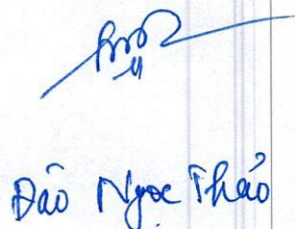 Đào Ngọc Thảo